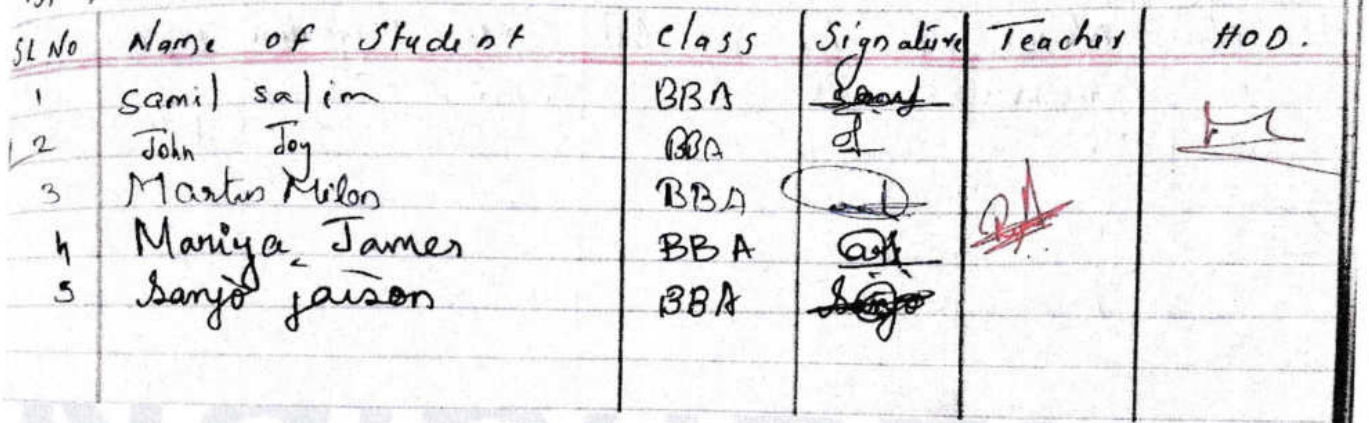 SL No Name of Student Class Signature Teacher HOD.
1 Samil salim BBA
2 John Joy BBA
3 Martin Milon BBA
4 Mariya James BBA
5 Sanjo jaison BBA Sanjo